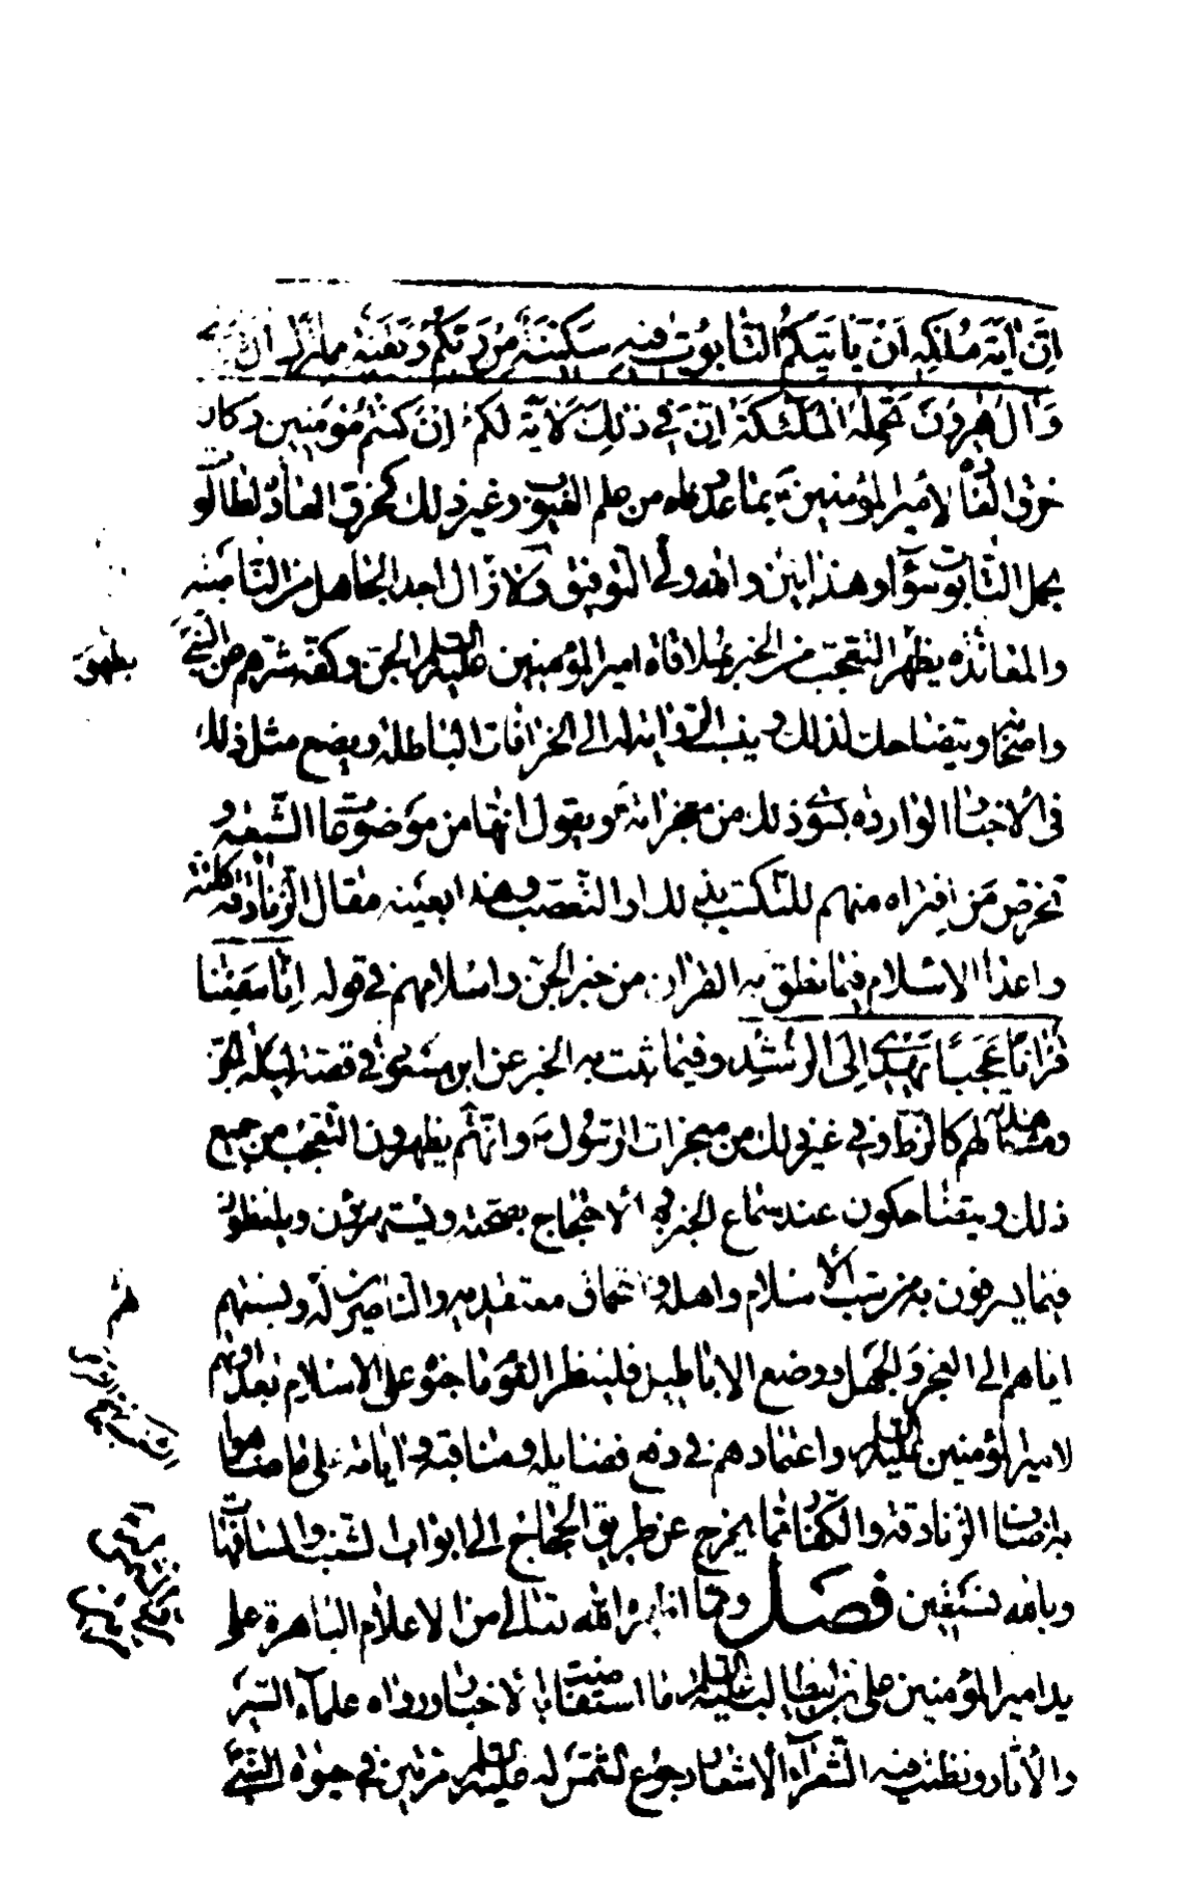 اِنَّ اٰيَةَ مُلْكِهِ اَنْ يَاْتِيَكُمُ التَّابُوتُ فيهِ سَكينَةٌ مِنْ رَبِّكُمْ وَبَقِيَّةٌ مِمَّا تَرَكَ اٰلُ
وَاٰلُ هٰرُونَ تَحْمِلُهُ الْمَلٰئِكَةُ اِنَّ في ذٰلِكَ لَاٰيَةً لَكُمْ اِنْ كُنْتُمْ مُؤْمِنينَ وكان
خرق العادة لامير المؤمنين ع بما عددناه من علم الغيوب وغير ذلك كخرق العادة لطالوت
بحمل التابوت سواء وهذا بين والله ولي التوفيق ولا ازال اجد الجاهل من الناصبة
والمعاندة يظهر التعجب من الخبر بملاقاة امير المؤمنين عليه السلام الجن وكفه شرهم عن النبي
واصحابه ويتضاحك لذلك وينسب الرواية له الى الخرافات الباطلة ويصنع مثل ذلك
في الاخبار الواردة بسوى ذلك من معجزاته ع ويقول انها من موضوعات الشيعة و
تخرص من افتراه منهم للتكسب بذلك او التعصب وهذا بعينه مقال الزنادقة كافة
واعداء الاسلام فيما نطق به القران من خبر الجن واسلامهم في قوله اِنّا سَمِعْنا
قُرْاٰنًا عَجَبًا يَهْدي اِلَى الرُّشْدِ وفيما ثبت به الخبر عن ابن مسعود في قصته ليلة الجن
ومشاهدته لهم كالزط وفي غير ذلك من معجزات الرسول ص وانهم يظهرون التعجب من جميع
ذلك ويتضاحكون عند سماع الخبر به والاحتجاج بصحته ويستهزؤن ويلغطون
فيما يسرفون به من سب الاسلام واهله واستحماق معتقديه والناصرين له ونسبتهم
اياهم الى العجز والجهل ووضع الاباطيل فلينظر القوم ما جنوه على الاسلام بعداوتهم
لامير المؤمنين عليه السلام واعتمادهم في دفع فضايله ومناقبه واياته على ما ضاهوا
به اصناف الزنادقة والكفار مما يخرج عن طريق الحجاج الى ابواب الشغب والمسافهة
وبالله نستعين فصل ومما اظهره الله تعالى من الاعلام الباهرة على
يد امير المؤمنين على بن ابيطالب عليه السلام ما استفاضت به الاخبار ورواه علماء السير
والاثار ونظمت فيه الشعراء الاشعار رجوع الشمس له عليه السلام مرتين في حيوة النبي